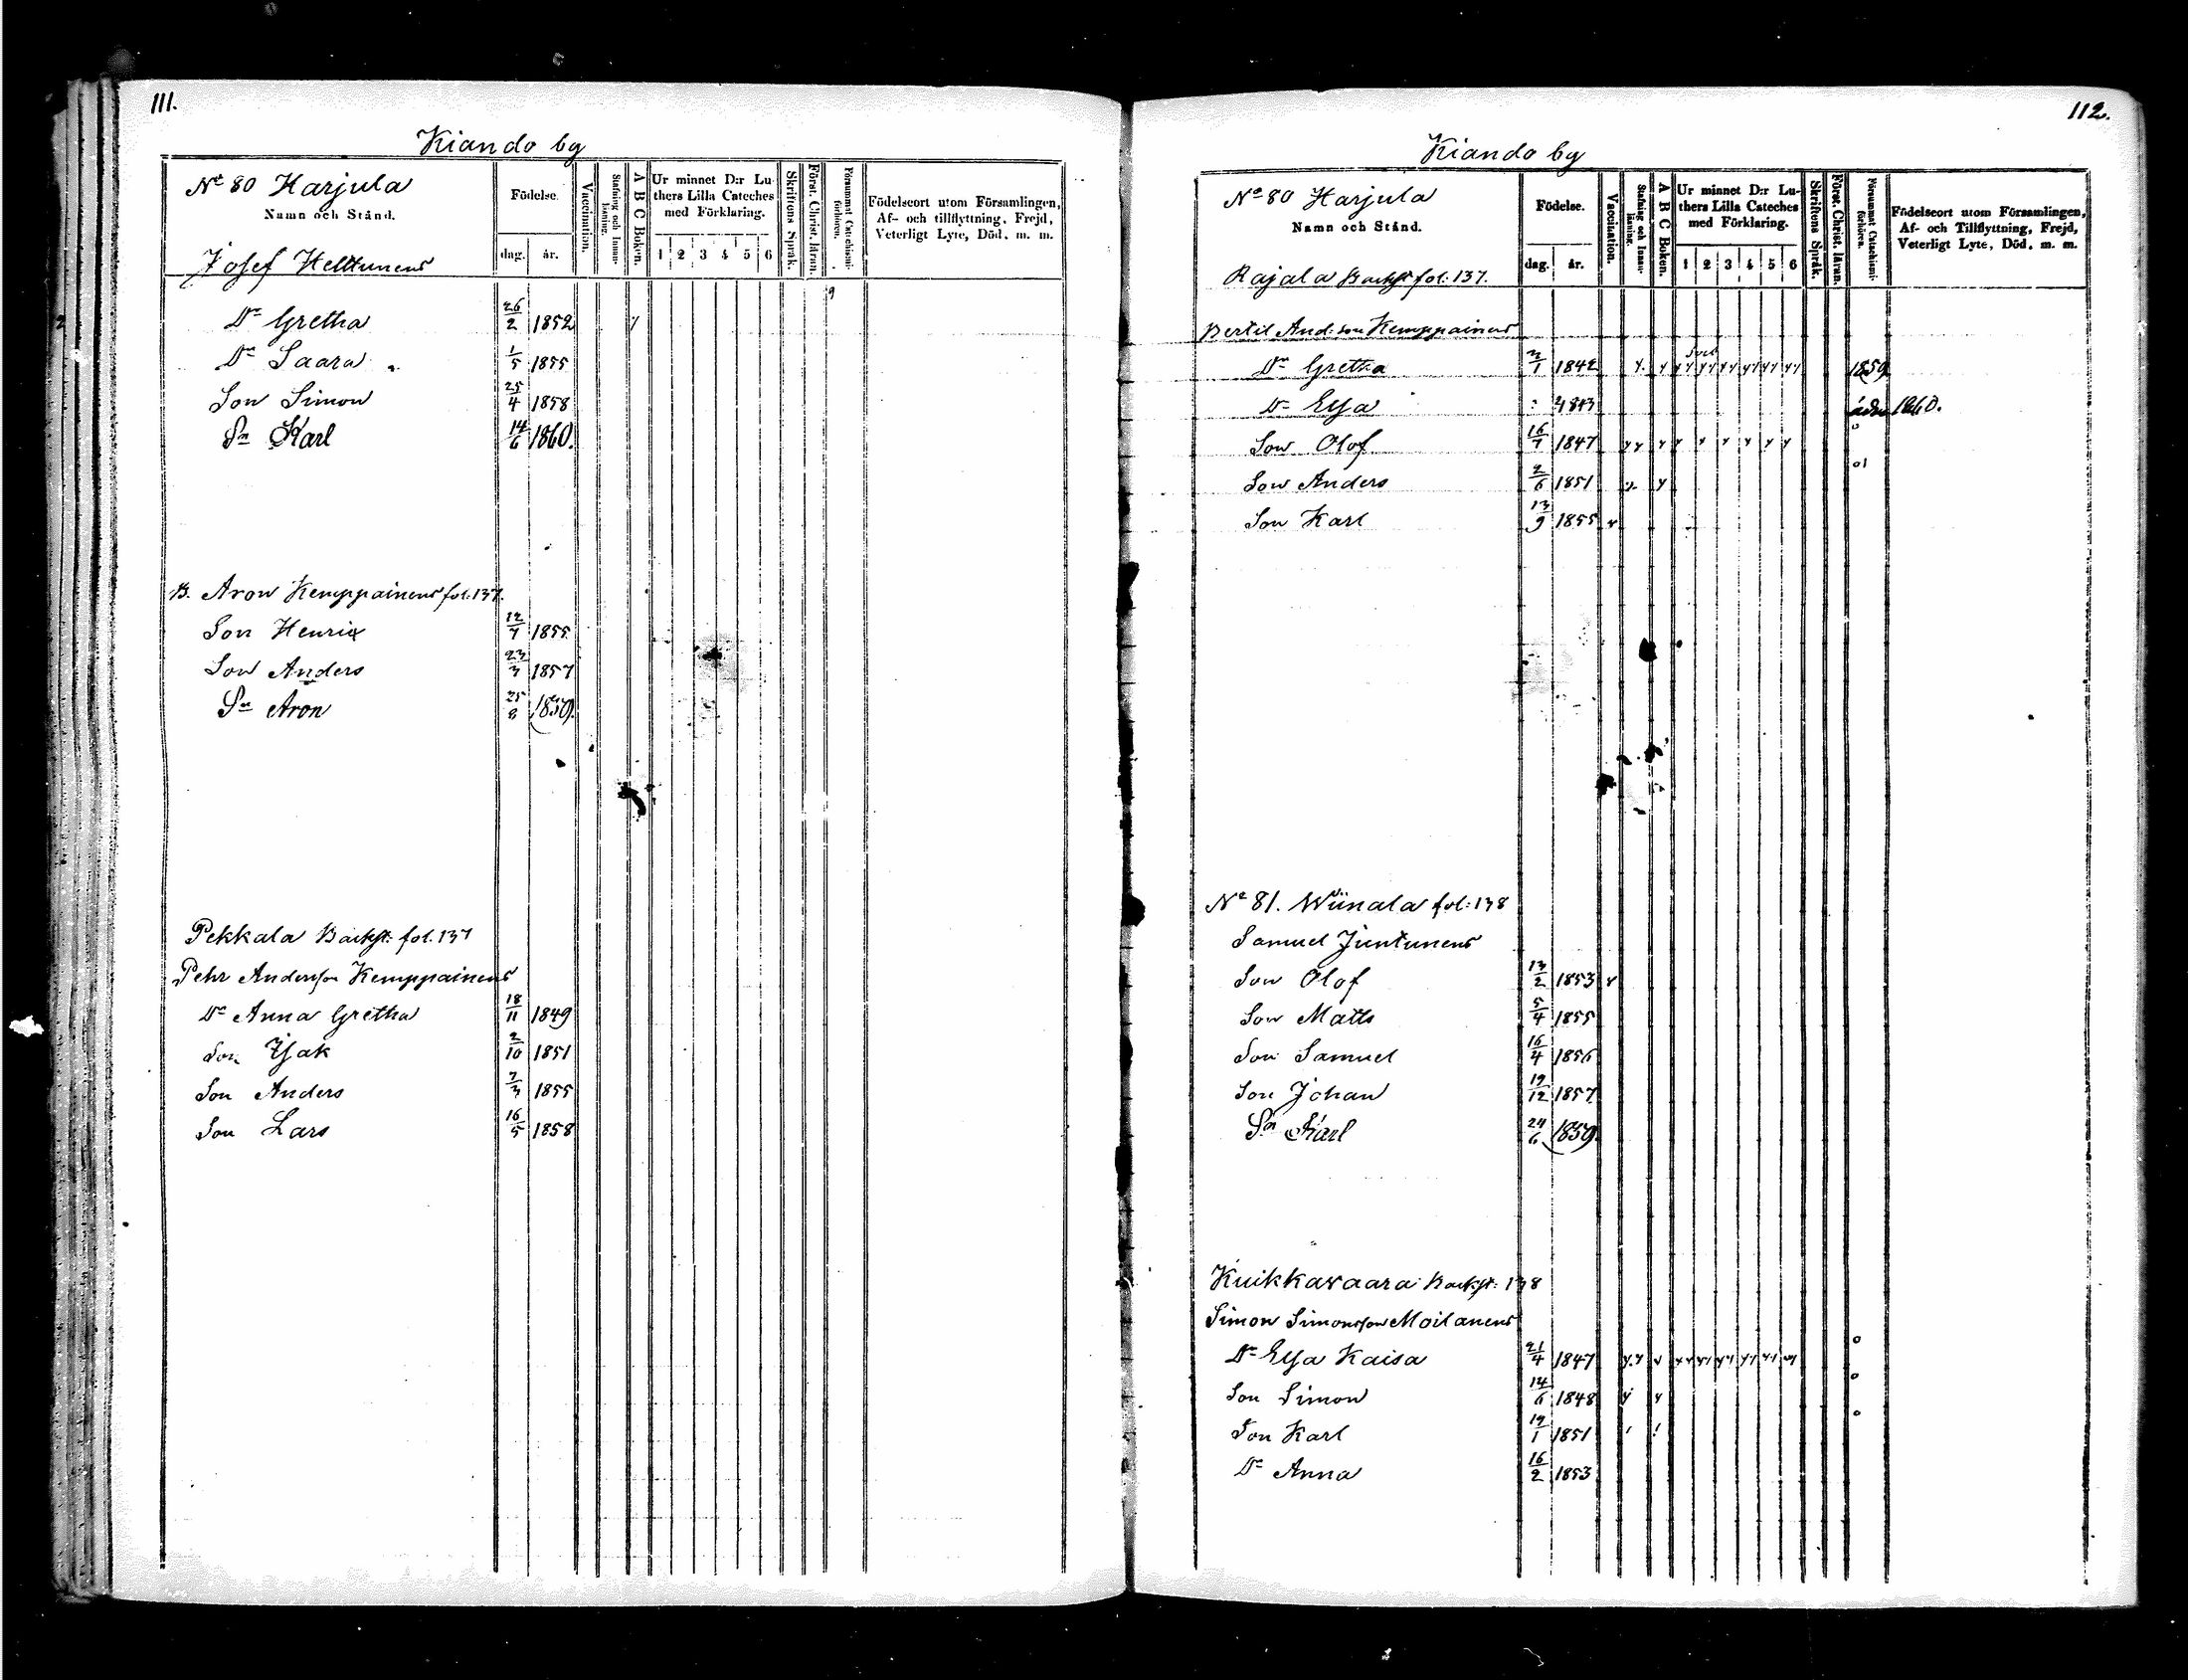 111.
Kiando by
No 80 Harjula
Namn och Stånd.
Födelse.
dag. år.
Vaccination.
Stafning och Innanläsning.
A B C Boken.
Ur minnet D:r Luthers Lilla Cateches med Förklaring.
1 2 3 4 5 6
Skriftens Språk.
Först. Christ. läran.
Försummat Catechismiförhören.
Födelseort utom Församlingen, Af- och tillflyttning, Frejd, Veterligt Lyte, Död, m. m.
Josef Heltunens
Dr Gretha 26/2 1852
Dr Saara 1/5 1855
Son Simon 25/4 1858
Sn Karl 14/6 1860.
B. Aron Kemppainens fol: 137.
Son Henric 1855
Son Anders 23/3 1857
Sn Aron 25/8 1859.
Pekkala Backst: fol. 137
Pehr Andersson Kemppainens
Dr Anna Gretha 18/11 1849
Son Isak 2/10 1851
Son Anders 7/3 1855
Son Lars 16/5 1858
112.
Kiando by
No 80 Harjula
Namn och Stånd.
Födelse.
dag. år.
Vaccination.
Stafning och Innanläsning.
A B C Boken.
Ur minnet D:r Luthers Lilla Cateches med Förklaring.
1 2 3 4 5 6
Skriftens Språk.
Först. Christ. läran.
Försummat Catechismiförhören.
Födelseort utom Församlingen, Af- och Tillflyttning, Frejd, Veterligt Lyte, Död, m. m.
Rajala Backst fol: 137.
Bertil And:son Kemppainens
Dr Gretha 1842 1859
Dr Elsa 1843 1860.
Son Olof 1847
Son Anders 2/6 1851
Son Karl 13/9 1855
No 81. Wiinala fol: 138
Samuel Juntunens
Son Olof 13/2 1853
Son Matts 5/4 1855
Son Samuel 16/4 1856
Son Johan 19/12 1857
Sn Karl 24/6 1859
Kuikkawaara Backst: 138
Simon Simonsson Moilanens
Dr Elsa Kaisa 21/4 1847
Son Simon 14/6 1848
Son Karl 19/1 1851
Dr Anna 16/2 1853